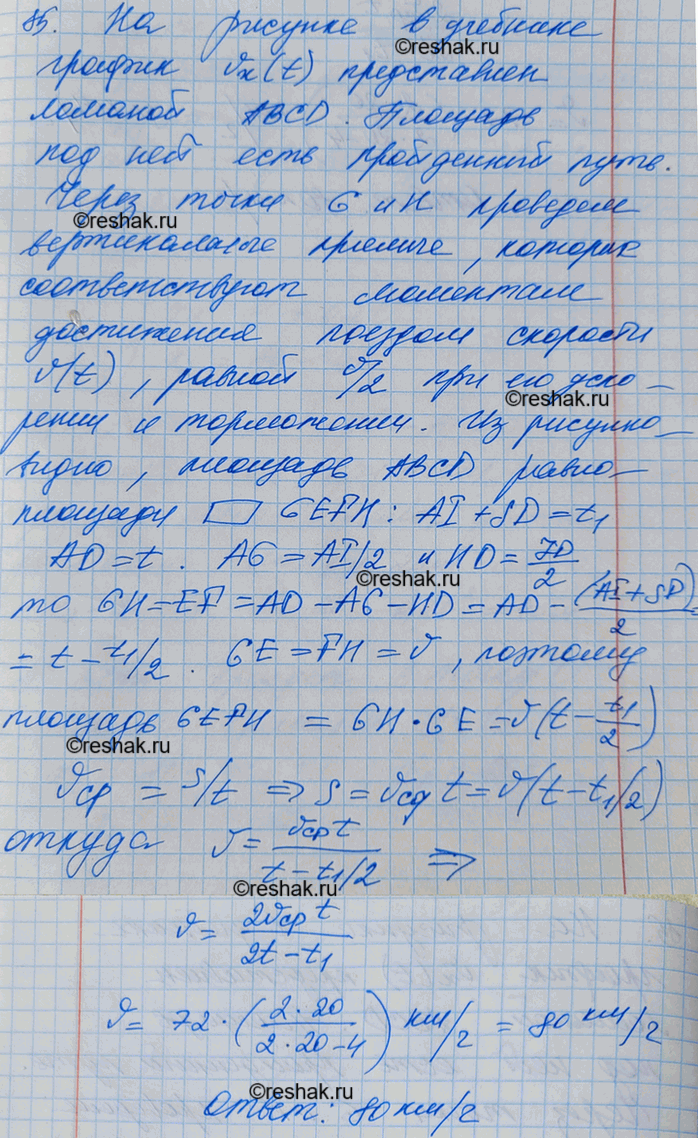 85. На рисунке в учебнике
©reshak.ru
график υx(t) представлен
ломаной ABCD. Площадь
под ней есть пройденный путь.
Через точки G и H проведем
©reshak.ru
вертикальные прямые, которые
соответствуют моментам
достижения поездом скорости
υ(t), равной υ/2 при его уско-
©reshak.ru
рении и торможении. Из рисунка
видно, площадь ABCD равна
площади ▱ GEFH: AI + SD = t₁
AD = t. AG = AI/2 и HD = JD/2
©reshak.ru
то GH = EF = AD - AG - HD = AD - (AI + SD)/2 =
= t - t₁/2. GE = FH = υ, поэтому
площадь GEFH = GH · GE = υ(t - t₁/2)
©reshak.ru
υср = S/t ⇒ S = υср t = υ(t - t₁/2)
откуда υ = υср t / (t - t₁/2) ⇒
©reshak.ru
υ = 2υср t / (2t - t₁)
υ = 72 · (2·20 / (2·20-4)) км/г = 80 км/г
©reshak.ru
Ответ: 80 км/г